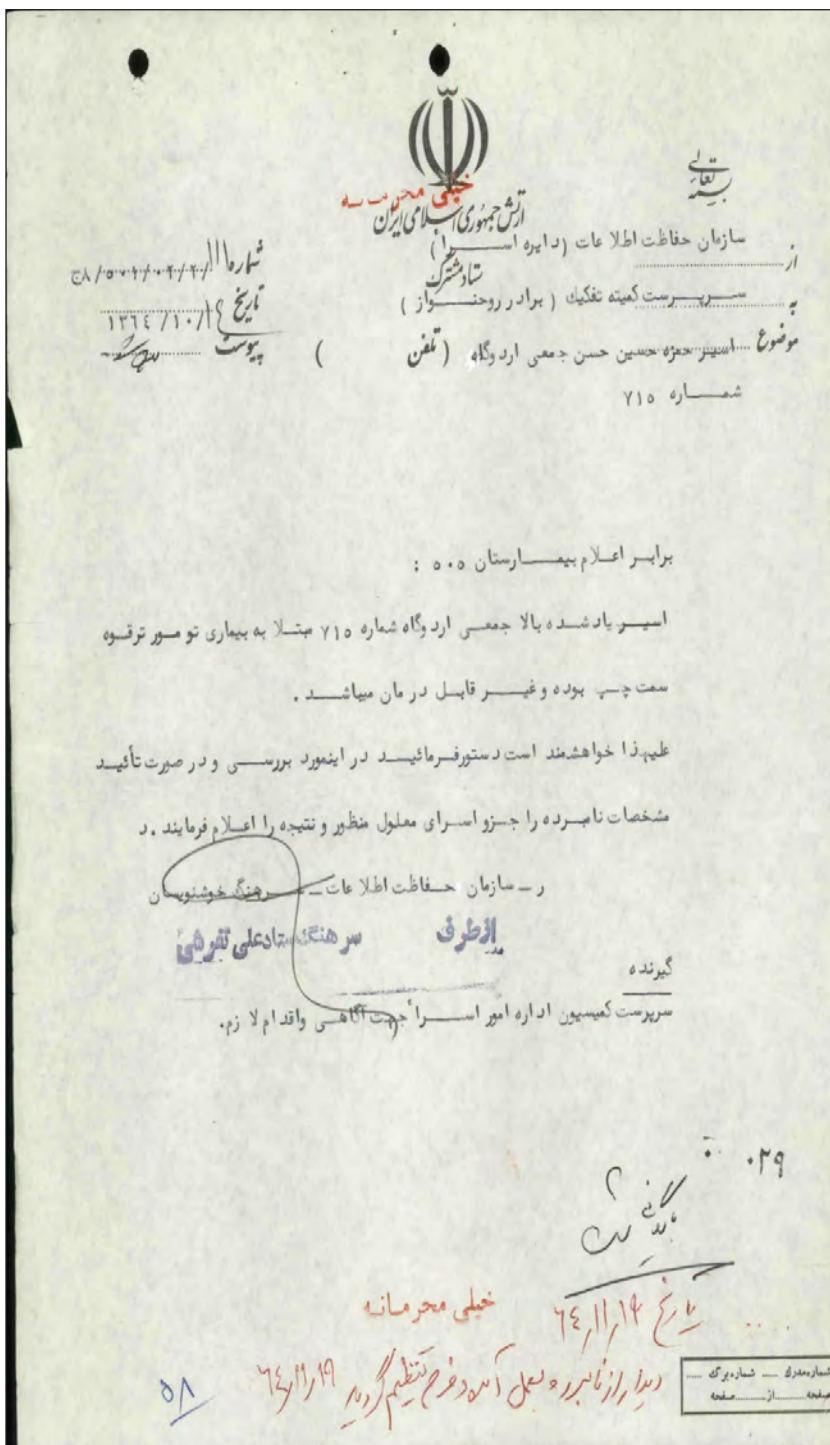 بسمه تعالی
خیلی محرمانه
ارتش جمهوری اسلامی ایران
ستاد مشترک
از سازمان حفاظت اطلاعات (دایره اسرا)
به سرپرست کمیته تفکیک (برادر روحنواز)
موضوع اسیر حمزه حسین حسن جمعی اردوگاه (تلفن )
شماره ۷۱۵
شماره
تاریخ ۱۳٦٤/۱۰/۱٤
پیوست
برابر اعلام بیمارستان ۵۰۵ :
اسیر یاد شده بالا جمعی اردوگاه شماره ۷۱۵ مبتلا به بیماری تومور ترقوه
سمت چپ بوده و غیر قابل درمان میباشد .
علیهذا خواهشمند است دستور فرمائید در اینمورد بررسی و در صورت تأئید
مشخصات نامبرده را جزو اسرای معلول منظور و نتیجه را اعلام فرمایند . د
ر ـ سازمان حفاظت اطلاعات ـ سرهنگ خوشنویسان
از طرف سرهنگ ستاد علی تفرشی
گیرنده
سرپرست کمیسیون اداره امور اسرا جهت آگاهی و اقدام لازم.
۰۲۹
بایگانی شد
تاریخ ٦٤/۱۱/۱۹
خیلی محرمانه
دیدار از نامبرده بعمل آمد و فرم تنظیم گردید ٦٤/۱۱/۱۹
۵۸
شماره مدرک ..... شماره برگ .....
صفحه ..... از ..... صفحه